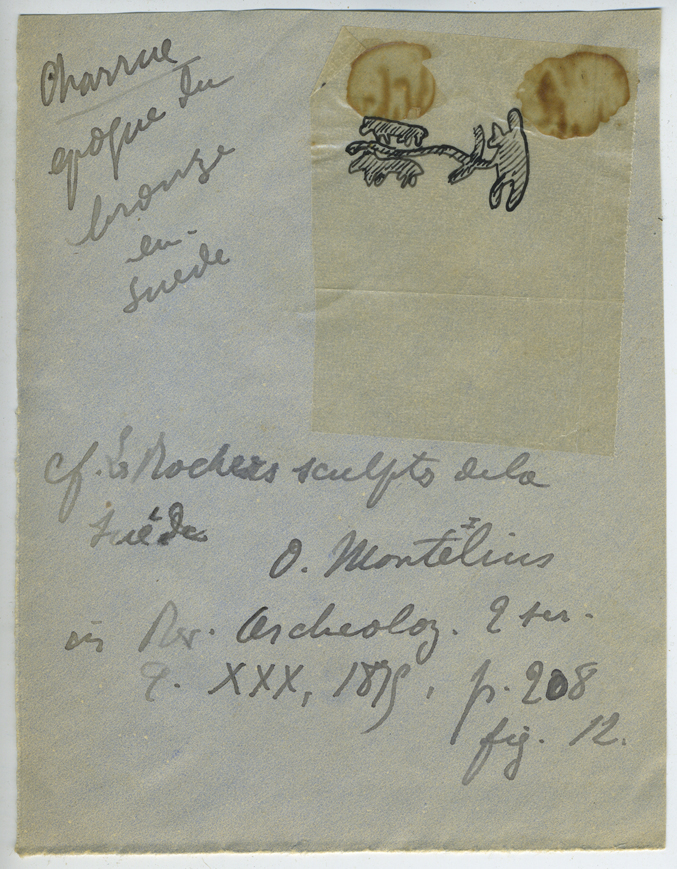 Charrue
epoque du
bronze
en
Suede
cf. Les Rochers sculptés de la
Suède
O. Montélius
in Rev. Archeolog. 2 ser.
T. XXX, 1875, p. 208
fig. 12.